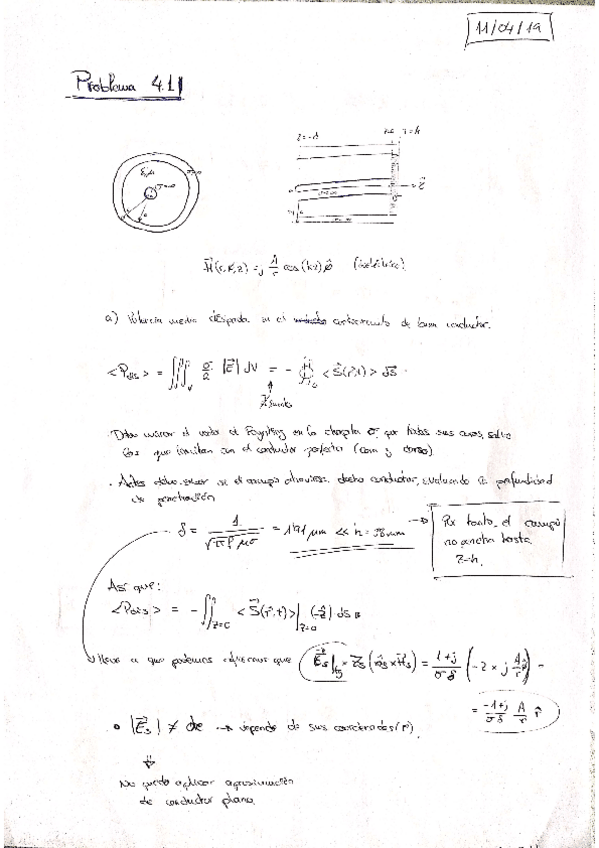 11/04/19
Problema 4.11
z=-h z=0 z=h
ε,μ σ=∞
H⃗(r,φ,z) = j A/r cos(kz) φ̂
a) Potencia media disipada en el cortocircuito de buen conductor.
<P_dis> = ∭_V σ/2 |E⃗| dV = - ∯_S <S⃗(r⃗,t)> dS⃗
Debo mirar el vector de Poynting en la chapita σ, por todas sus caras, salvo
las que limitan con el conductor perfecto
. Antes debo ver si el campo atraviesa dicho conductor, evaluando la profundidad
de penetración
δ = 1/√(πfμσ) = 1'91 μm << h → Por tanto, el campo
no penetra hasta
z=h.
Así que:
<P_dis> = - ∬_{z=0} <S⃗(r⃗,t)>|_{z=0} (-ẑ) dS
a que podemos que E⃗_s|_tg = Z_s (n̂_s × H⃗_s) = (1+j)/(σδ) (-ẑ × j A/r φ̂) =
= (-1+j)/(σδ) A/r r̂
• |E⃗_s| ≠ cte → depende de sus coordenadas (r)
⇓
No puedo aplicar aproximación
de conductor plano.